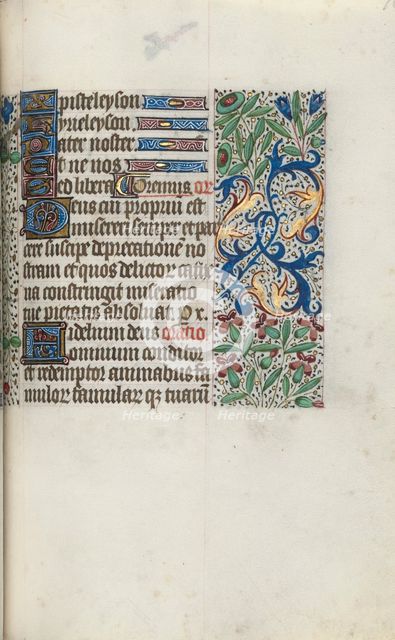 Xpisteleyson
Kyrieleyson
Pater noster
Et ne nos
Sed libera Oremus or
Deus cui proprium est
misereri semper et par
cere suscipe deprecationē no
stram et quos delictor cathe
na constringit miseratio
tue pietatis absoluat P x.
Fidelium deus oratio
omnium conditor
et redemptor animabus fa
mulor famular qz tuarū
Heritage Heritage